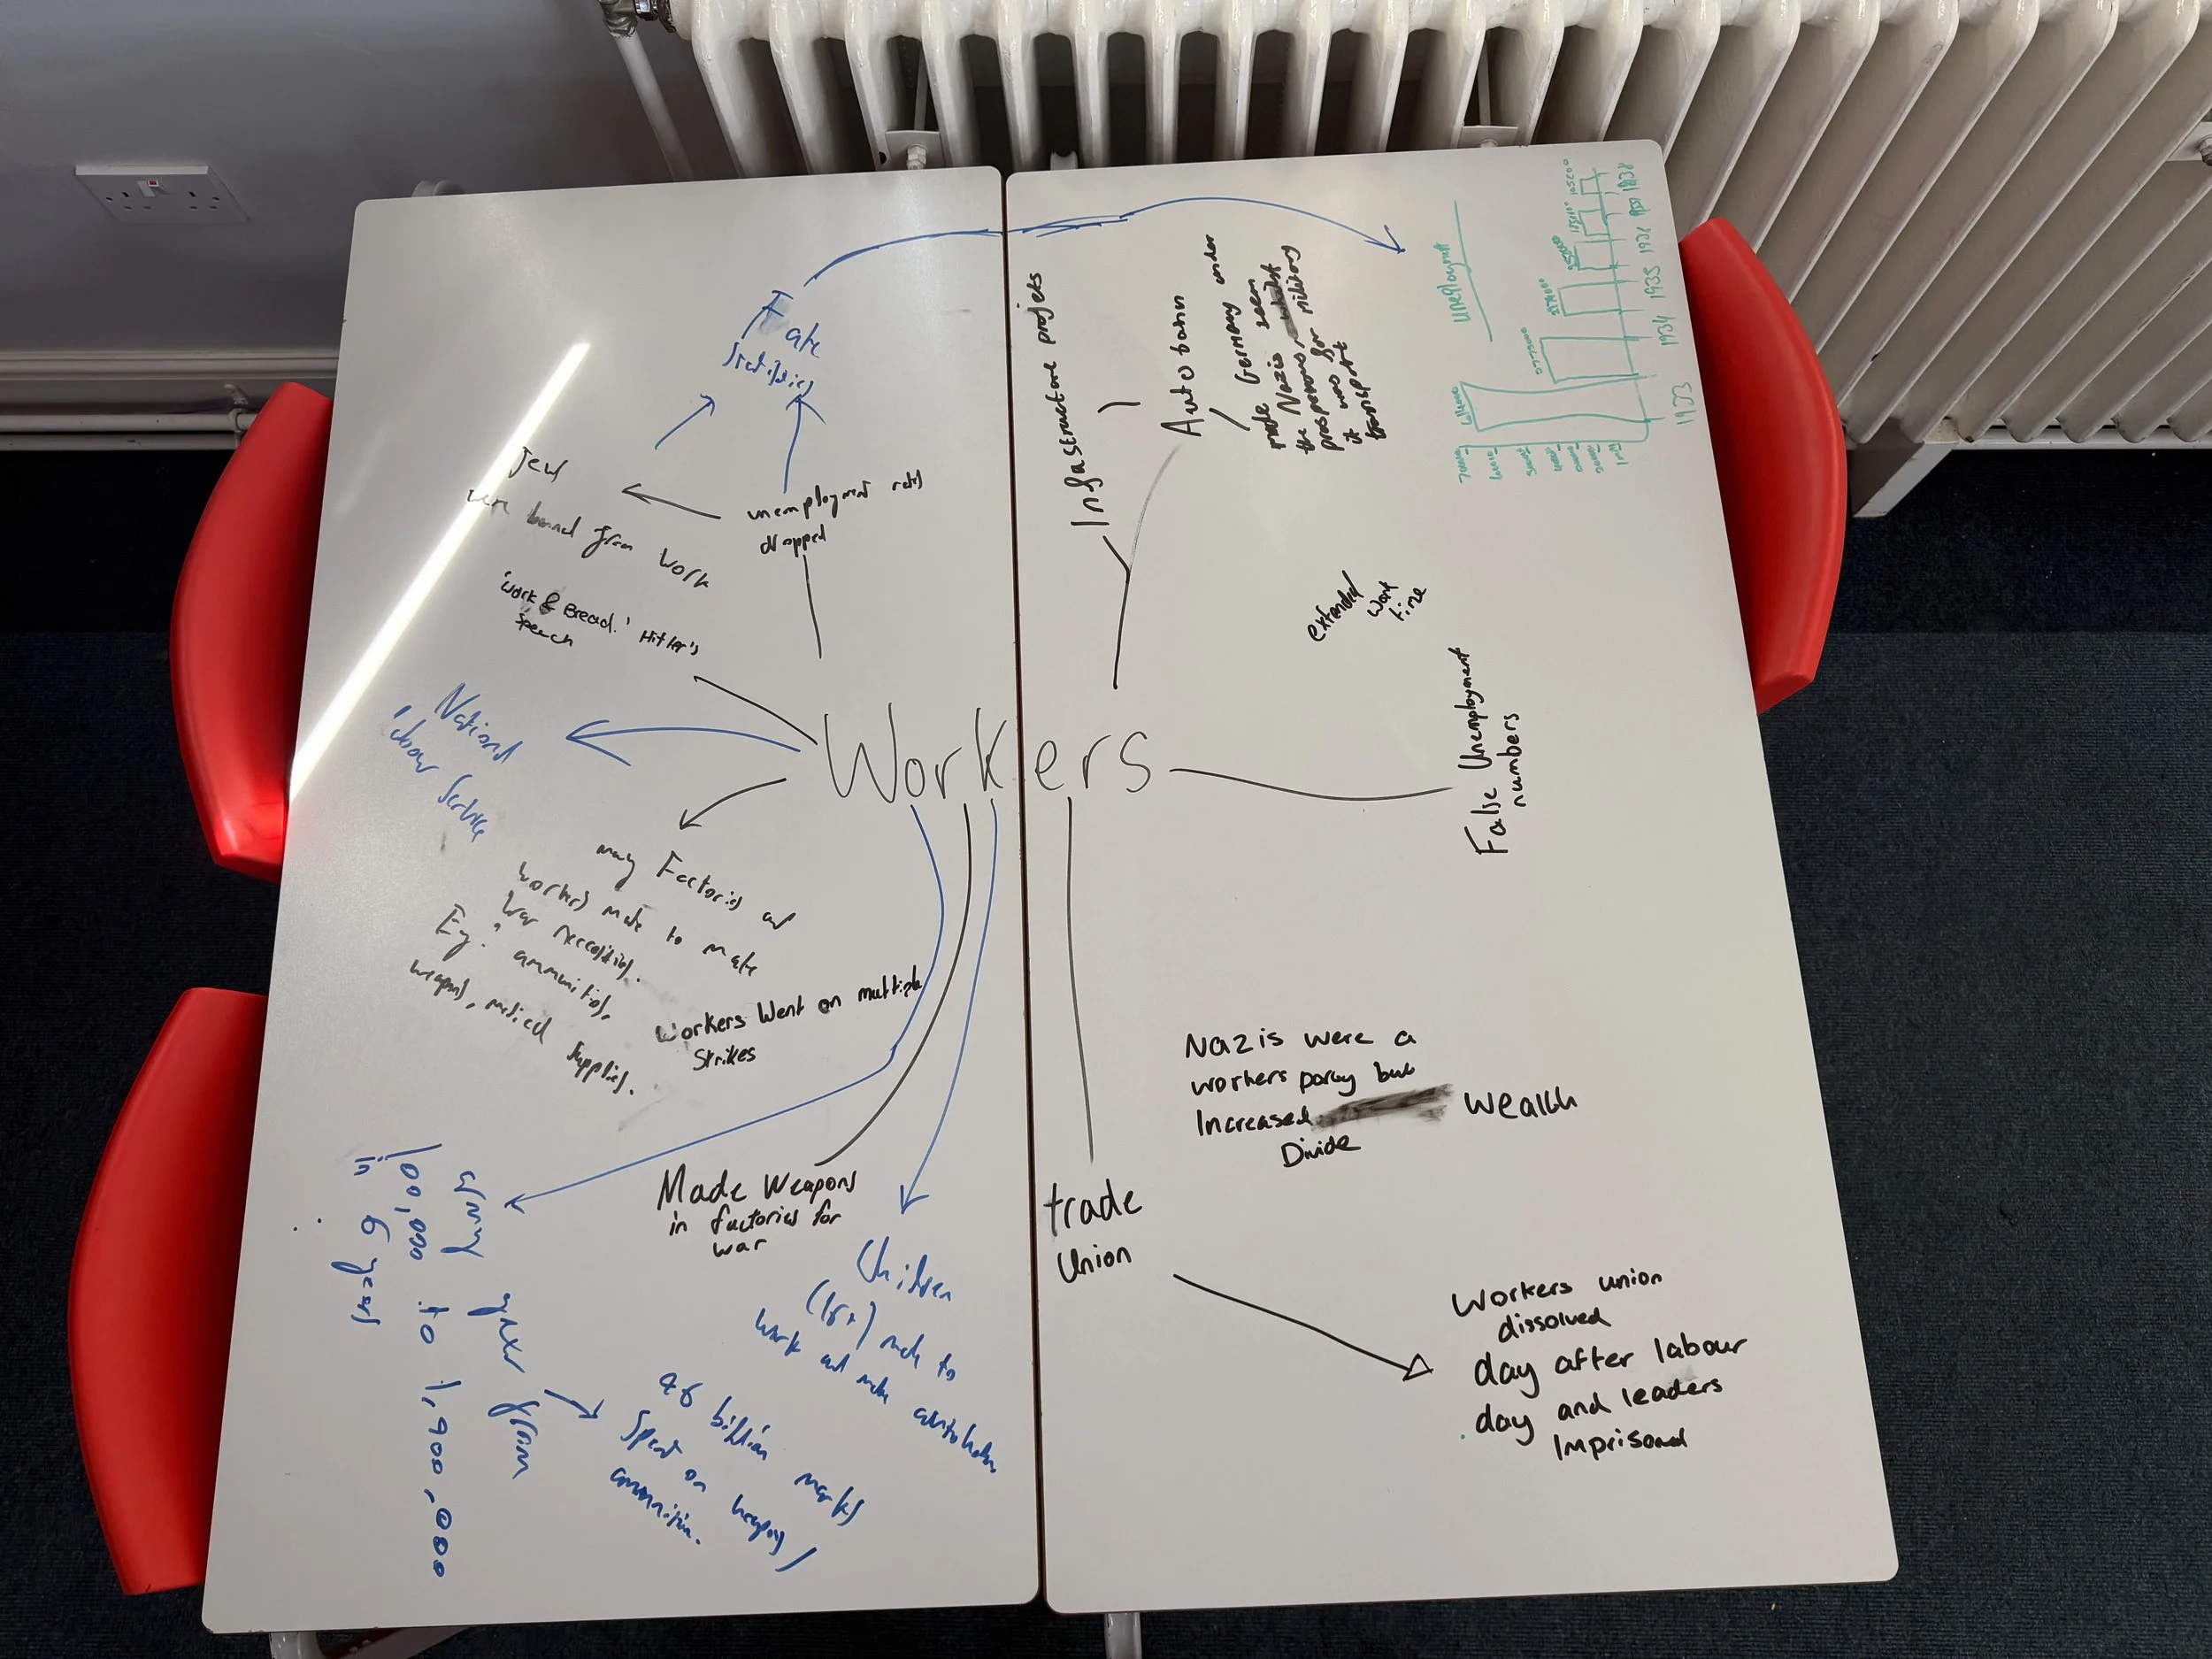 Fake
statistics
Jews
were banned from work
unemployment rates
dropped
'Work & Bread.' Hitler's
Speech
National
labour Service
Infastructure projets
Autobahn
made Germany under
the Nazis seem
prosperous,
it was for military
transport
Uneployment
1933
1934
1935
1936
1937
1938
extended
work
time
Workers
False Unemployment
numbers
many Factories and
workers made to make
war necessities.
Eg: ammunition,
weapons, medical supplies.
Workers Went on multiple
Strikes
Nazis were a
workers party but
Increased Wealth
Divide
Made Weapons
in factories for
war
trade
Union
Children
(18+) made to
work and make autobahn
army grew from
100,000 to 1,900,000
in 6 years
billion marks
spent on weapons/
ammunition.
Workers union
dissolved
day after labour
day and leaders
Imprisoned